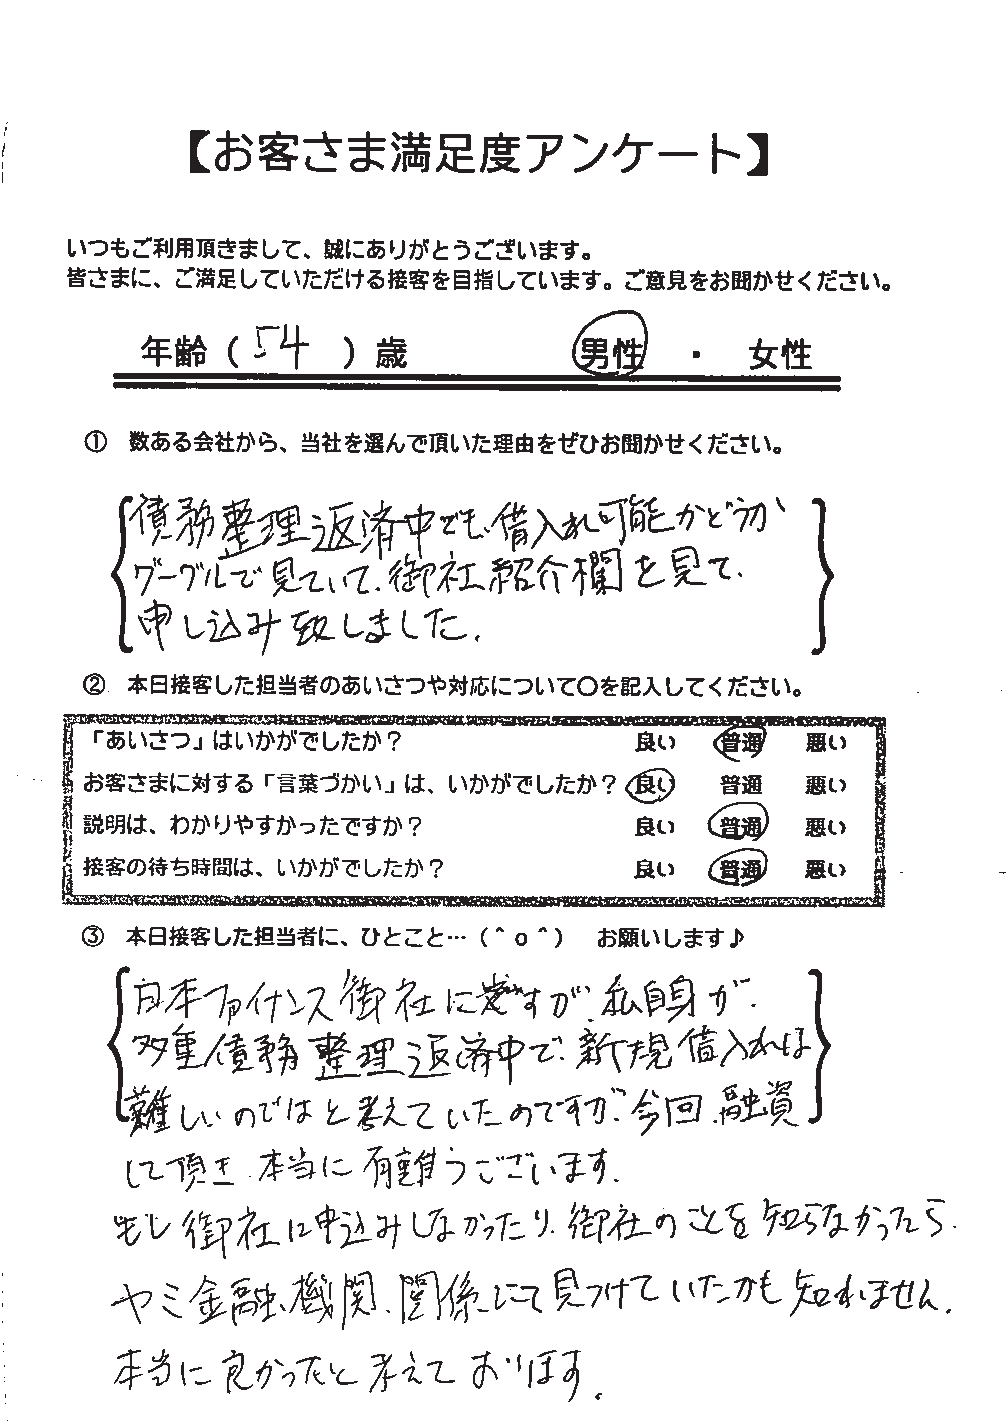 【お客さま満足度アンケート】
いつもご利用頂きまして、誠にありがとうございます。
皆さまに、ご満足していただける接客を目指しています。ご意見をお聞かせください。
年齢（ 54 ）歳 男性 ・ 女性
① 数ある会社から、当社を選んで頂いた理由をぜひお聞かせください。
債務整理返済中でも、借入れ可能かどうか
グーグルで見ていて、御社紹介欄を見て、
申し込み致しました。
② 本日接客した担当者のあいさつや対応について〇を記入してください。
「あいさつ」はいかがでしたか？ 良い 普通 悪い
お客さまに対する「言葉づかい」は、いかがでしたか？ 良い 普通 悪い
説明は、わかりやすかったですか？ 良い 普通 悪い
接客の待ち時間は、いかがでしたか？ 良い 普通 悪い
③ 本日接客した担当者に、ひとこと…（＾ｏ＾） お願いします♪
日本ファイナンス御社にですが、私自身が、
多重債務整理返済中で、新規借入れは
難しいのではと考えていたのですが、今回、融資
して頂き、本当に有難うございます。
もし御社に申込みしなかったり、御社のことを知らなかったら、
ヤミ金融、機関、関係にて見つけていたかも知れません。
本当に良かったと考えております。